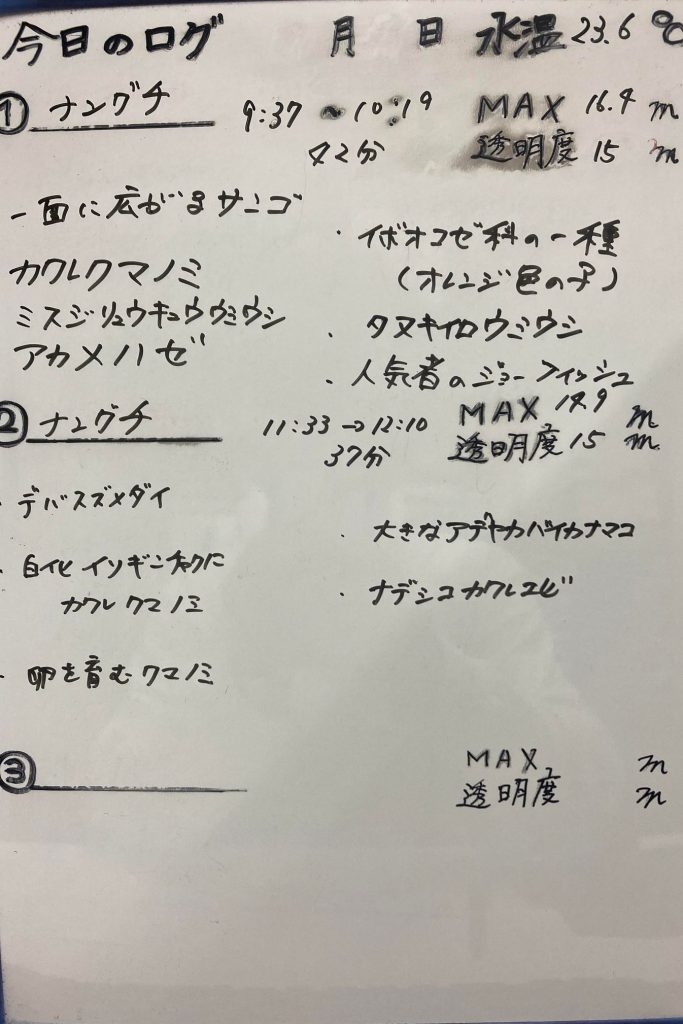 今日のログ 月 日 水温 23.6 ℃
① ナングチ 9:37 〜 10:19 MAX 16.4 m
42分 透明度 15 m
一面に広がるサンゴ
カクレクマノミ
ミスジリュウキュウウミウシ
アカメハゼ
・イボオコゼ科の一種
(オレンジ色の子)
・タヌキイロウミウシ
・人気者のジョーフィッシュ
② ナングチ 11:33 → 12:10 MAX 14.9 m
37分 透明度 15 m
・デバスズメダイ
・白化イソギンチャクに
カクレクマノミ
・卵を育むクマノミ
・大きなアデヤカバイカナマコ
・ナデシコカクレエビ
③ MAX m
透明度 m